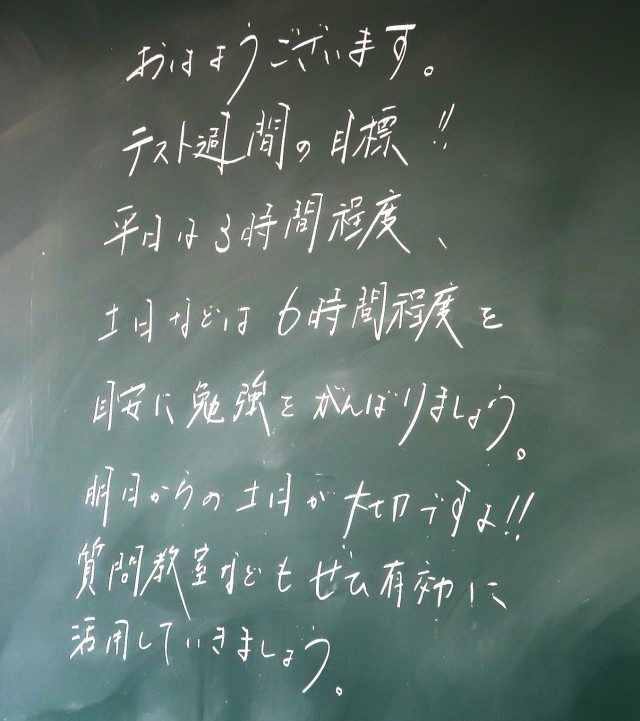 おはようございます。
テスト週間の目標!!
平日は3時間程度、
土日などは6時間程度を
目安に勉強をがんばりましょう。
明日からの土日が大切ですよ!!
質問教室などもぜひ有効に
活用していきましょう。